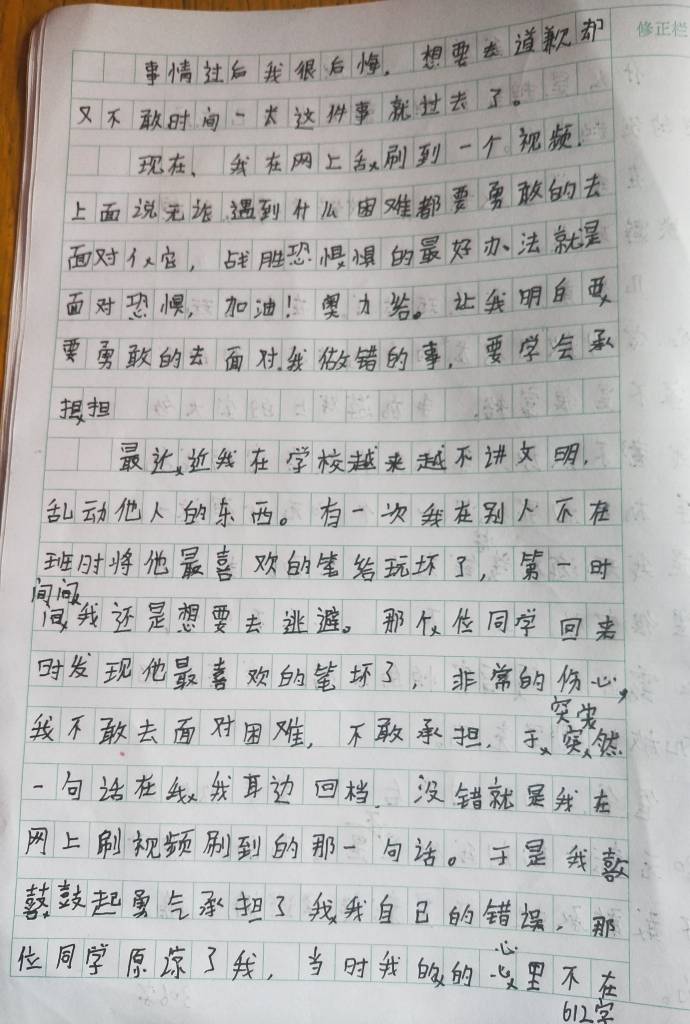 修正栏
事情过后我很后悔，想要去道歉却
又不敢时间一去这件事就过去了。
现在，我在网上刷到一个视频，
上面说无论遇到什么困难都要勇敢的去
面对它，战胜恐惧的最好办法就是
面对恐惧，加油！奥力给。让我明白要
要勇敢的去面对我做错的事，要学会承
担
最近我在学校越来越不讲文明，
乱动他人的东西。有一次我在别人不在
班时将他最喜欢的笔给玩坏了，第一时
间我还是想要去逃避。那位同学回来
时发现他最喜欢的笔坏了，非常的伤心，
我不敢去面对困难，不敢承担，突然
一句话在我耳边回档，没错就是我在
网上刷视频刷到的那一句话。于是我
鼓起勇气承担了我自己的错误，那
位同学原谅了我，当时我的心里不在
612字